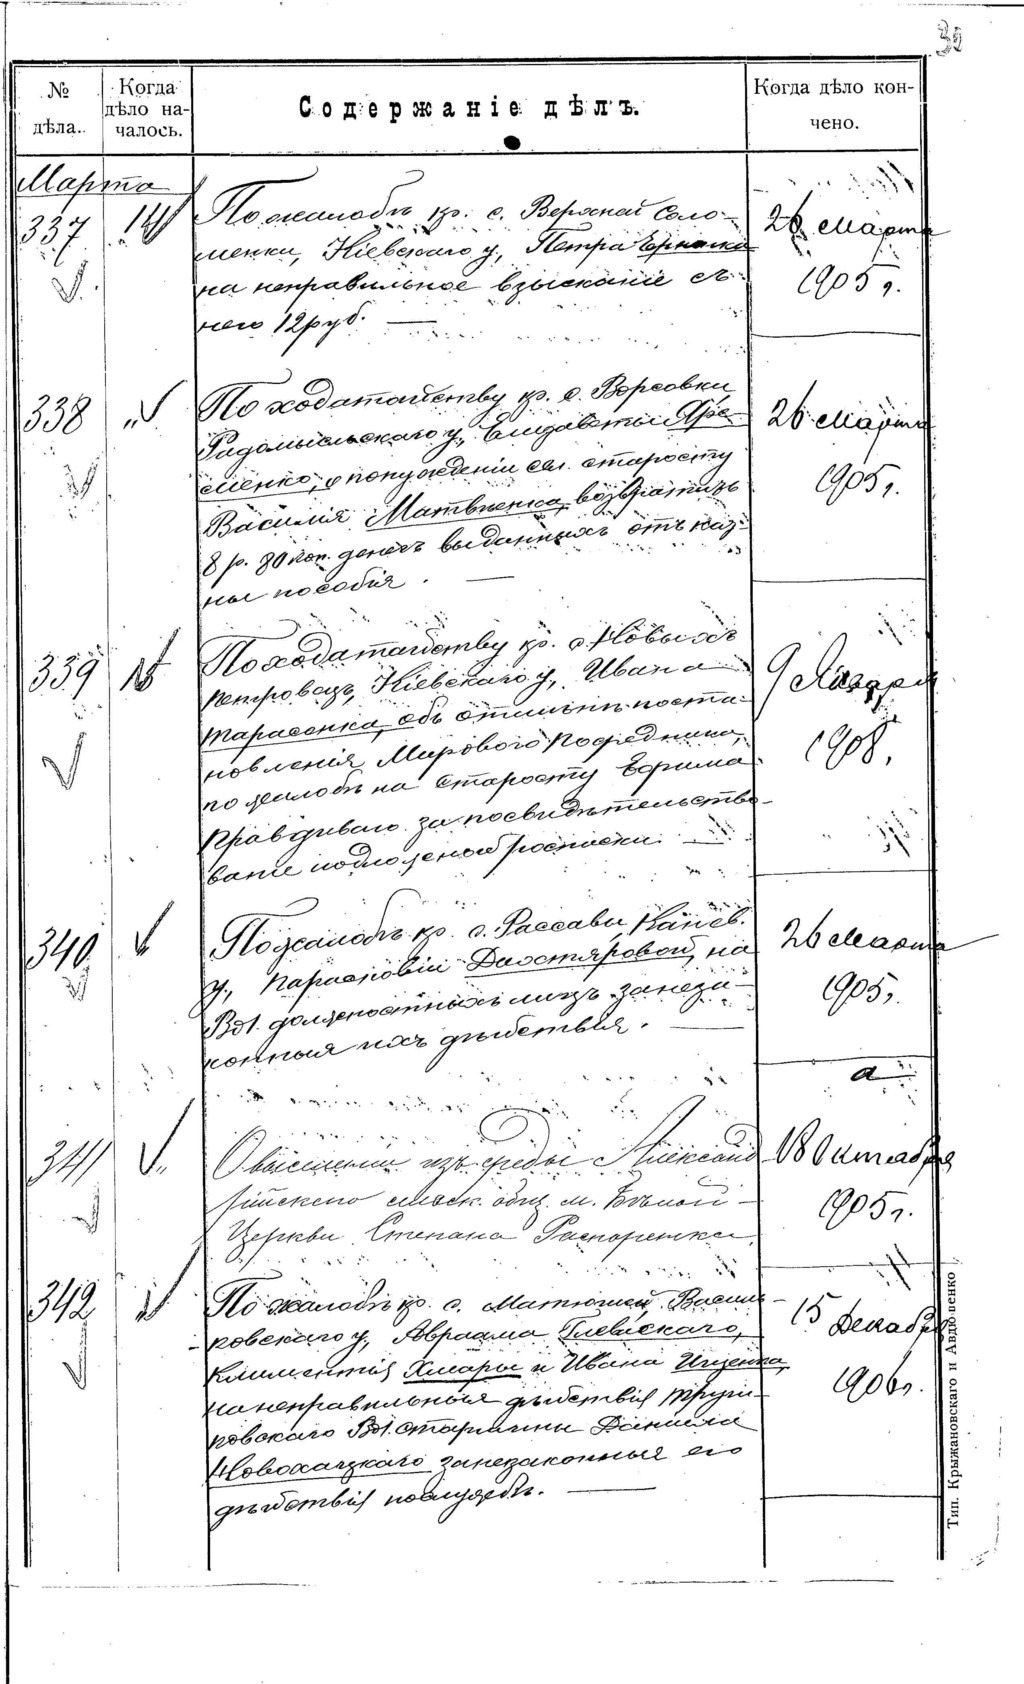 № дѣла..
Когда дѣло на-
чалось.
Содержаніе дѣлъ.
Когда дѣло кон-
чено.
Марта
337 14
По жалобѣ кр. с. Верхней Соло-
менки, Кіевскаго у., Петра
на неправильное взысканіе съ
него 12 руб. —
26 Марта
1905 г.
338 „
По ходатайству кр. с. Ворсовки
Радомысльскаго у., Елизаветы Яре-
менко, о понужденіи сел. старосту
Василія Матвѣенка, возвратить
8 р. 80 коп. денегъ выданныхъ отъ каз-
ны пособія. —
26 Марта
1905 г.
339
По ходатайству кр. с. Новыхъ
Петровецъ, Кіевскаго у., Ивана
Тарасенка, объ отмѣнѣ поста-
новленія Мирового Посредника,
по жалобѣ на Старосту Ефима
Правдиваго за посвидѣтельство-
ваніе подложной росписки. —
9 Января
1908.
340
По жалобѣ кр. с. Рассавы Канев.
у., Парасковіи на
Вол. должностныхъ лицъ за неза-
конныя ихъ дѣйствія. —
26 Марта
1905 г.
341
О выселеніи изъ среды Александ
рійскаго общ. м. Бѣлой-
Церкви Степана
18 Октября
1905 г.
342
По жалобѣ кр. с. Матюшей, Василь-
ковскаго у., Авраама Глевскаго,
Климентія Хмары и Ивана Ищенка,
на неправильныя дѣйствія
Вол. старшины Даніила
Новохацкаго за незаконныя его
дѣйствія по службѣ. —
15 Декабря
1906 г.
Тип. Крыжановскаго и Авдюшенко